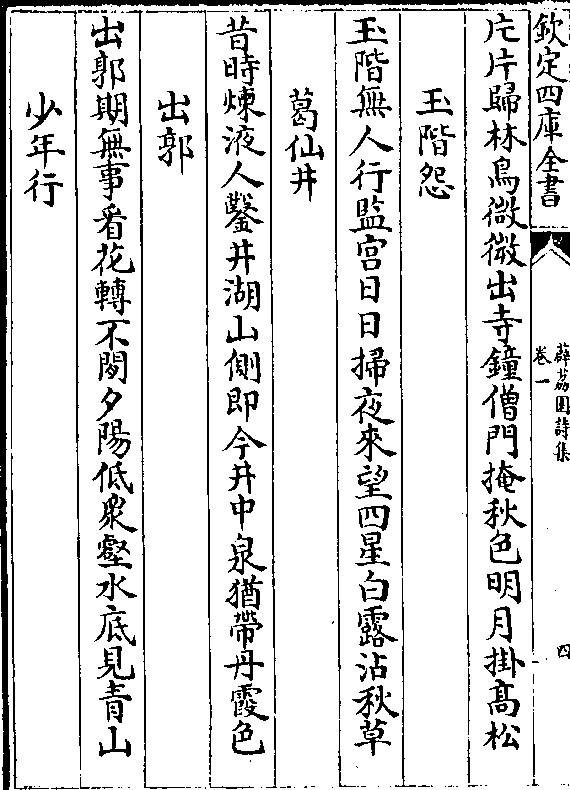 欽定四庫全書
薜荔園詩集
卷一
四
片片歸林鳥微微出寺鐘僧門掩秋色明月掛髙松
玉階怨
玉階無人行監宫日日掃夜來望四星白露沾秋草
葛仙井
昔時煉液人鑿井湖山側即今井中泉猶帶丹霞色
出郭
出郭期無事看花轉不閒夕陽低衆壑水底見青山
少年行